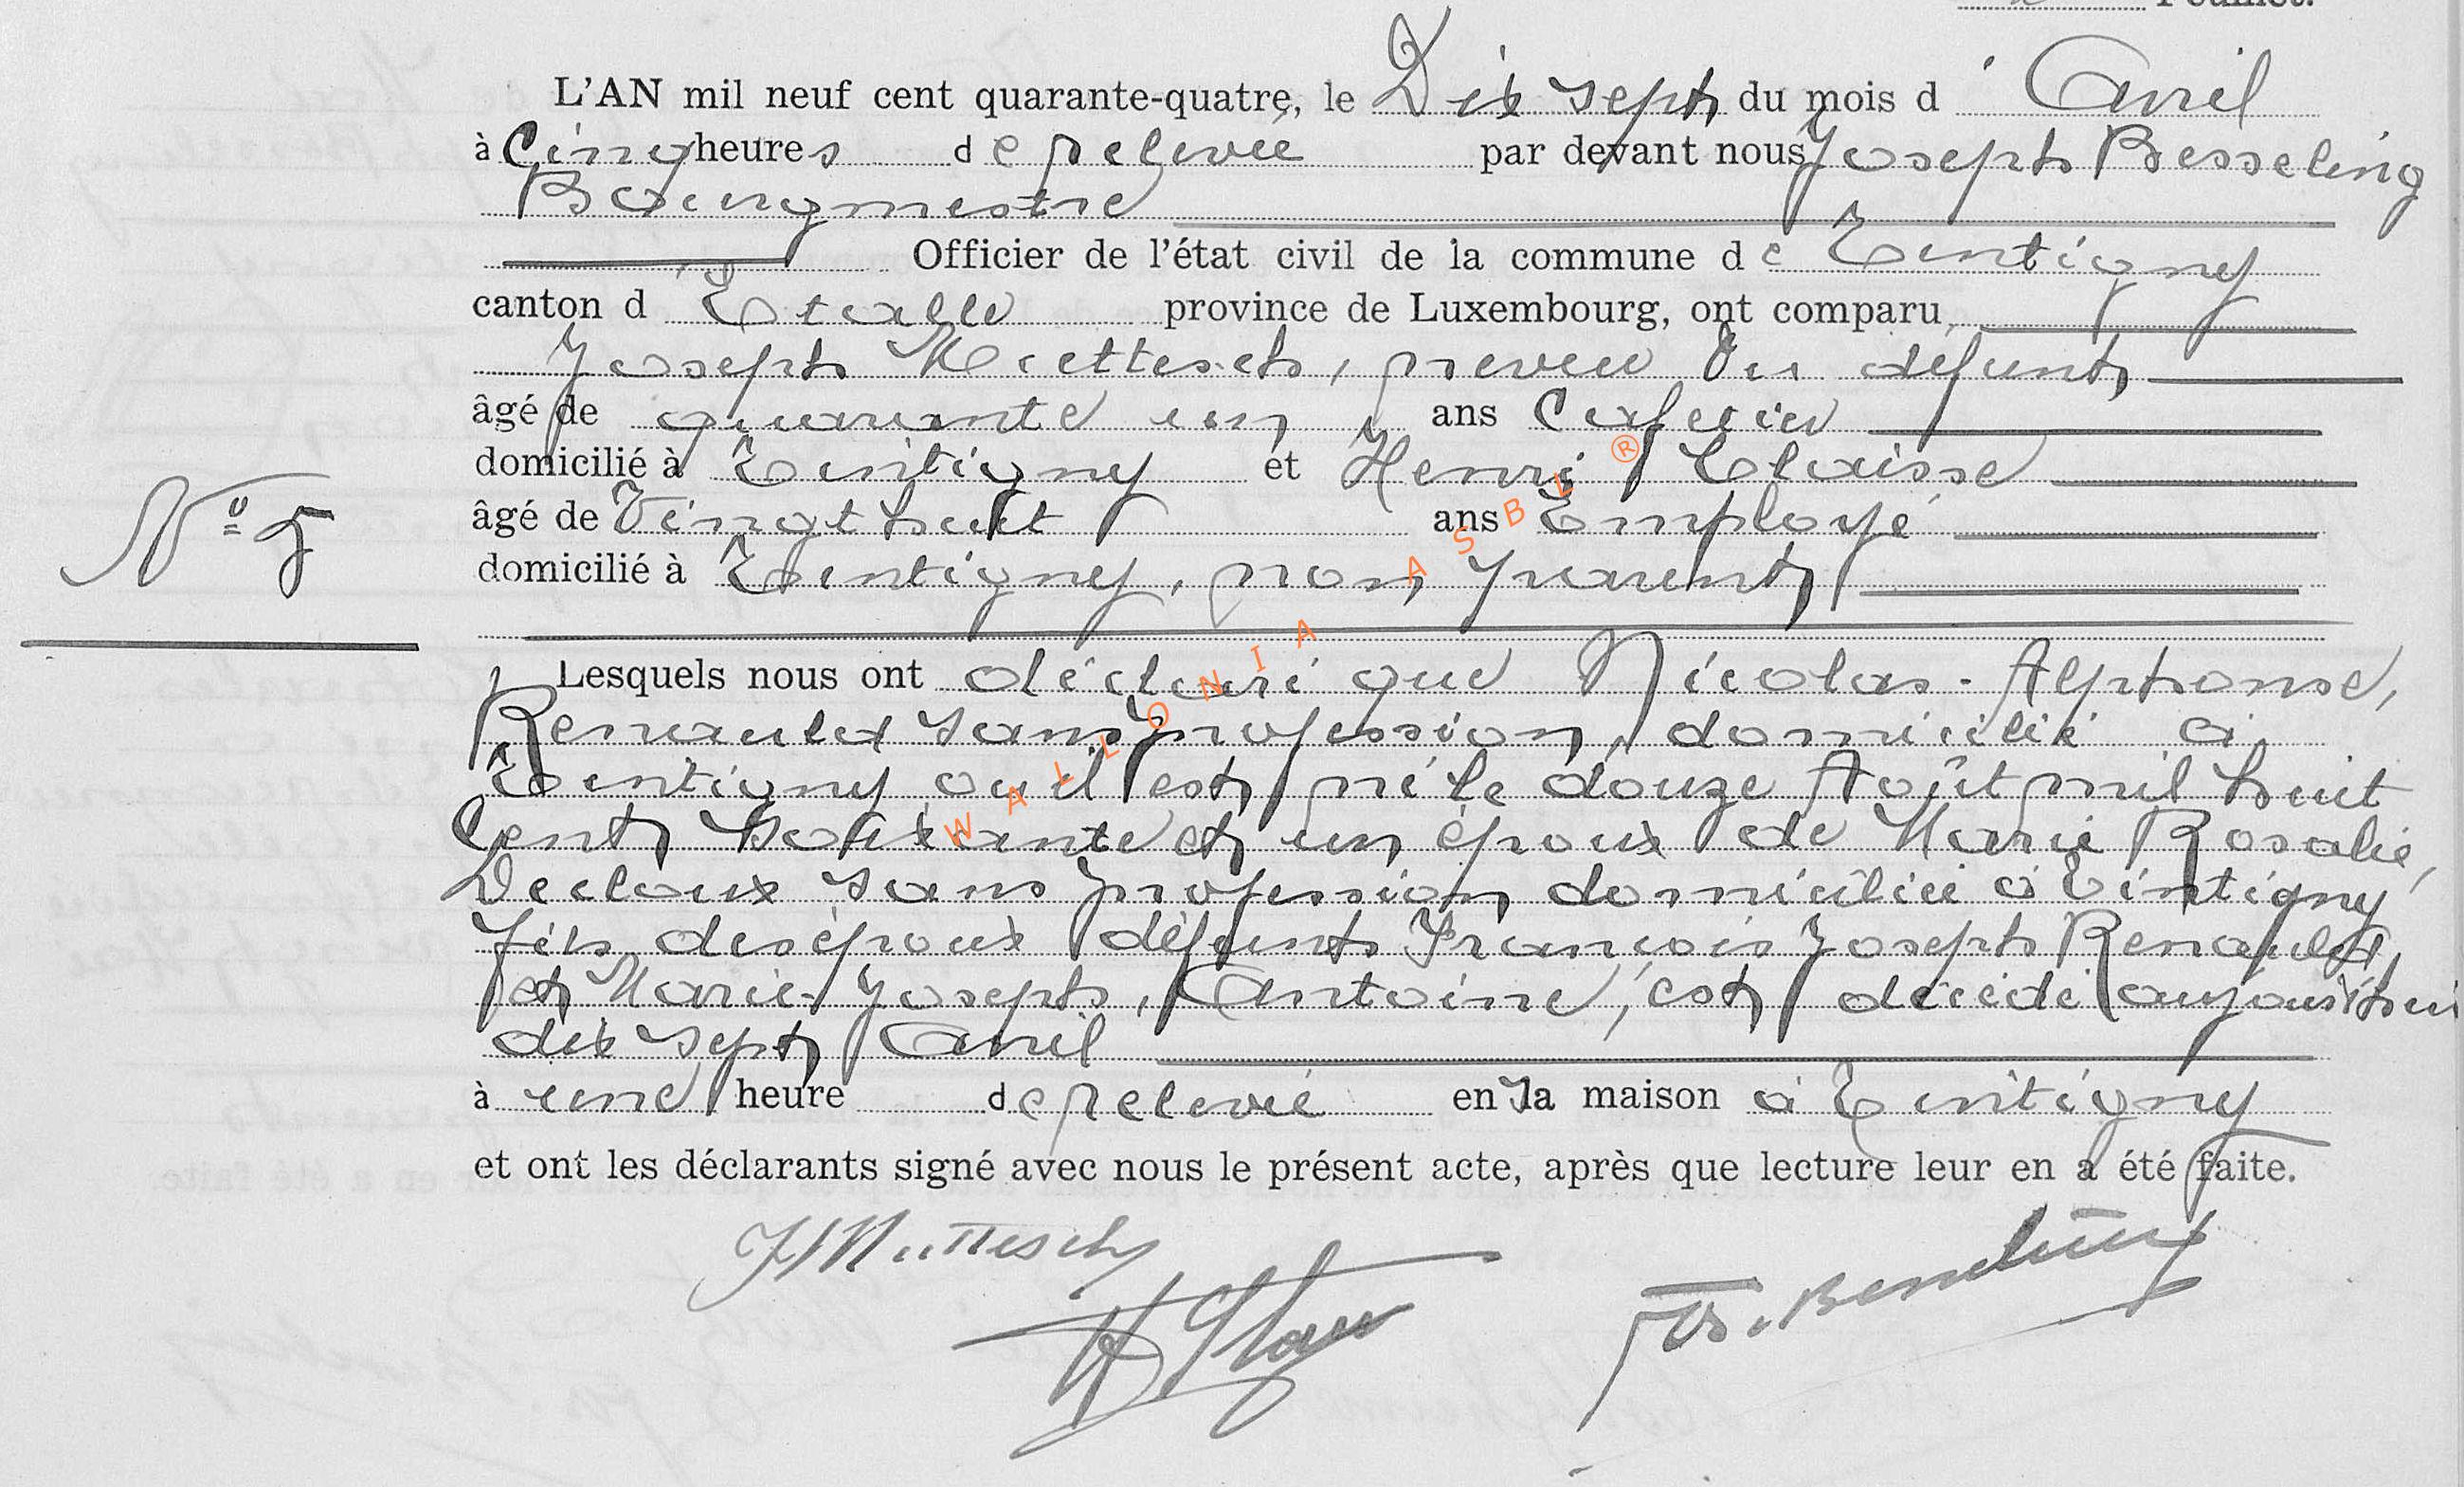 Feuillet.
L'AN mil neuf cent quarante-quatre, le Dix sept du mois d' Avril
à Cinq heures de relevée par devant nous Joseph Besseling
Bourgmestre
Officier de l'état civil de la commune de Tintigny
canton d' Etalle province de Luxembourg, ont comparu,
Joseph neveu du défunt
âgé de quarante un ans Cafetier
domicilié à Tintigny et Henri Claisse
âgé de Vingt huit ans Employé
domicilié à Tintigny, non parent
N° 5
Lesquels nous ont déclaré que Nicolas-Alphonse,
Renauld sans profession, domicilié à
Tintigny ou il est né le douze Août mil huit
Cent Soixante et un époux de Marie Rosalie,
Decloux sans profession domiciliée à Tintigny
fils des époux défunts François Joseph Renauld,
et Marie-Joseph, Antoine, est décédé aujourd'hui
dix sept Avril
à une heure de relevée en la maison à Tintigny
et ont les déclarants signé avec nous le présent acte, après que lecture leur en a été faite.
WALLONIA ASBL ®